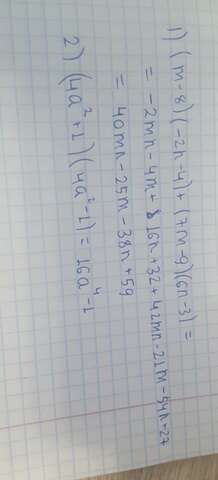 1) (m-8)(-2n-4)+(7m-9)(6n-3)=
= -2mn-4m+16n+32+42mn-21m-54n+27
= 40mn-25m-38n+59
2) (4a²+1)(4a²-1)=16a⁴-1